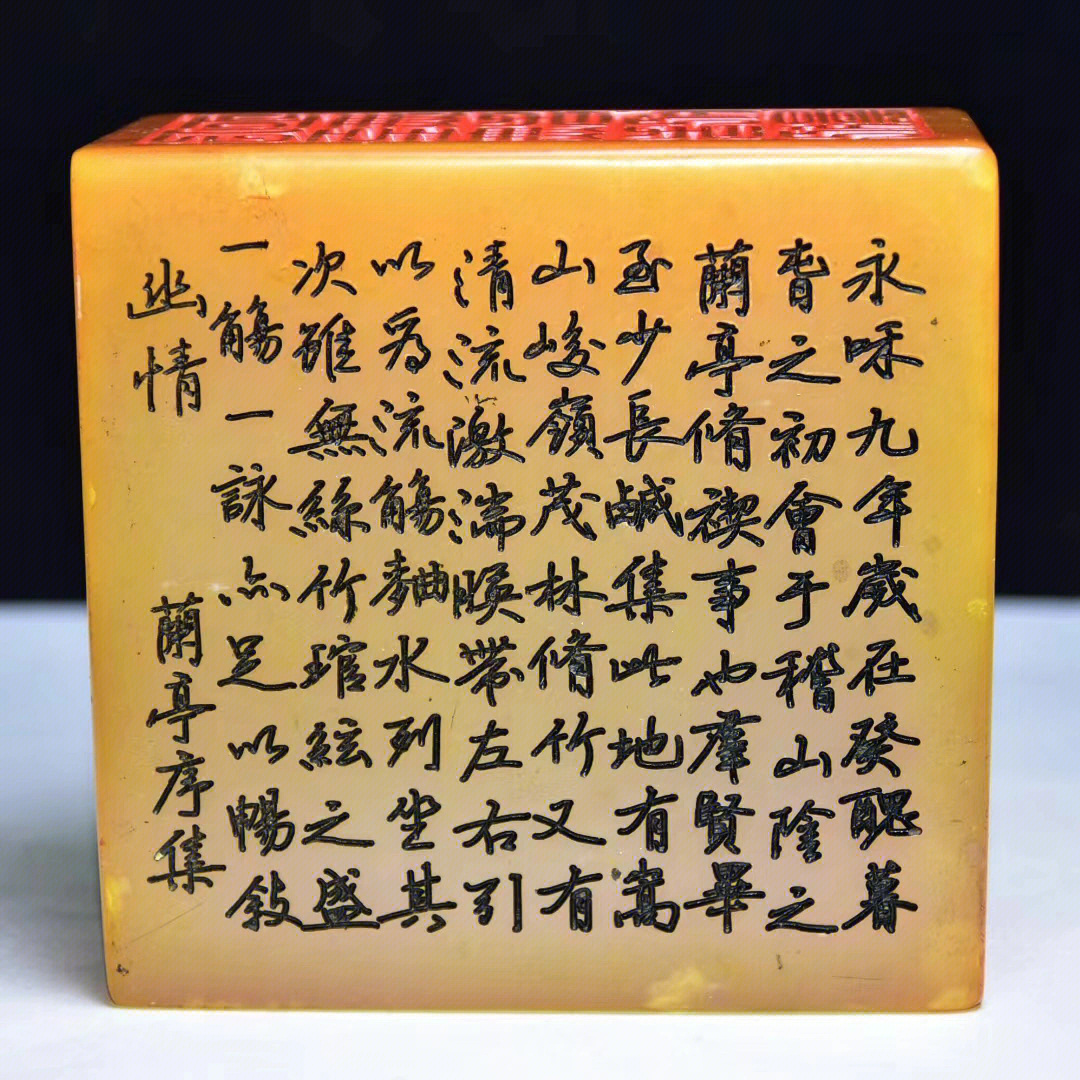 永和九年歲在癸醜暮
春之初會于稽山陰之
蘭亭脩禊事也羣賢畢
至少長鹹集此地有嵩
山峻嶺茂林脩竹又有
清流激湍暎帶左右引
以為流觴麯水列坐其
次雖無絲竹琯絃之盛
一觴一詠亦足以暢敘
幽情
蘭亭序集